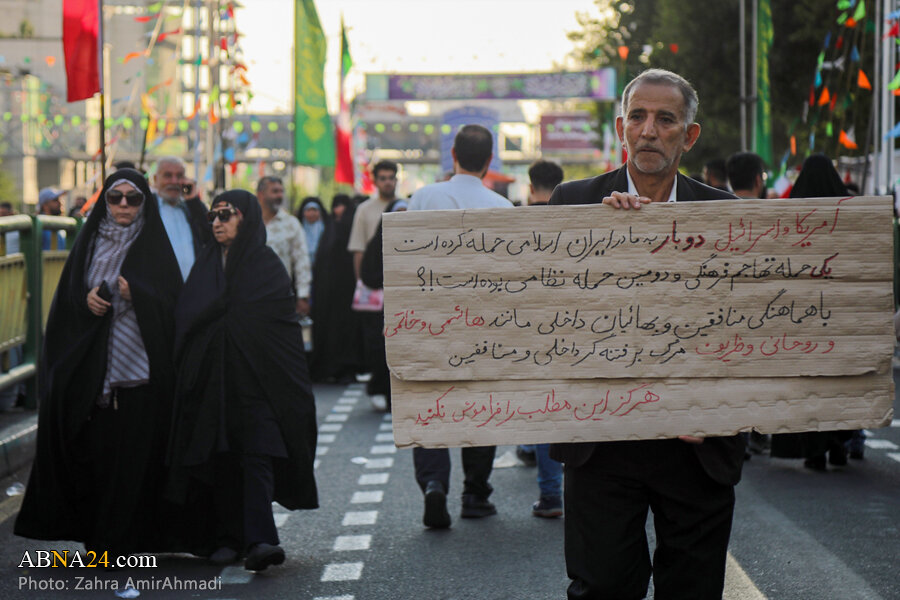 آمریکا و اسرائیل دوبار به مادر ایران اسلامی حمله کرده است
یکی حمله تهاجم فرهنگی و دومین حمله نظامی بوده است!؟
با هماهنگی منافقین و بهائیان داخلی مانند هاشمی و خاتمی
و روحانی و ظریف مرگ بر فتنه گر داخلی و منافقین
هرگز این مطلب را فراموش نکنید
ABNA24.com
Photo: Zahra AmirAhmadi